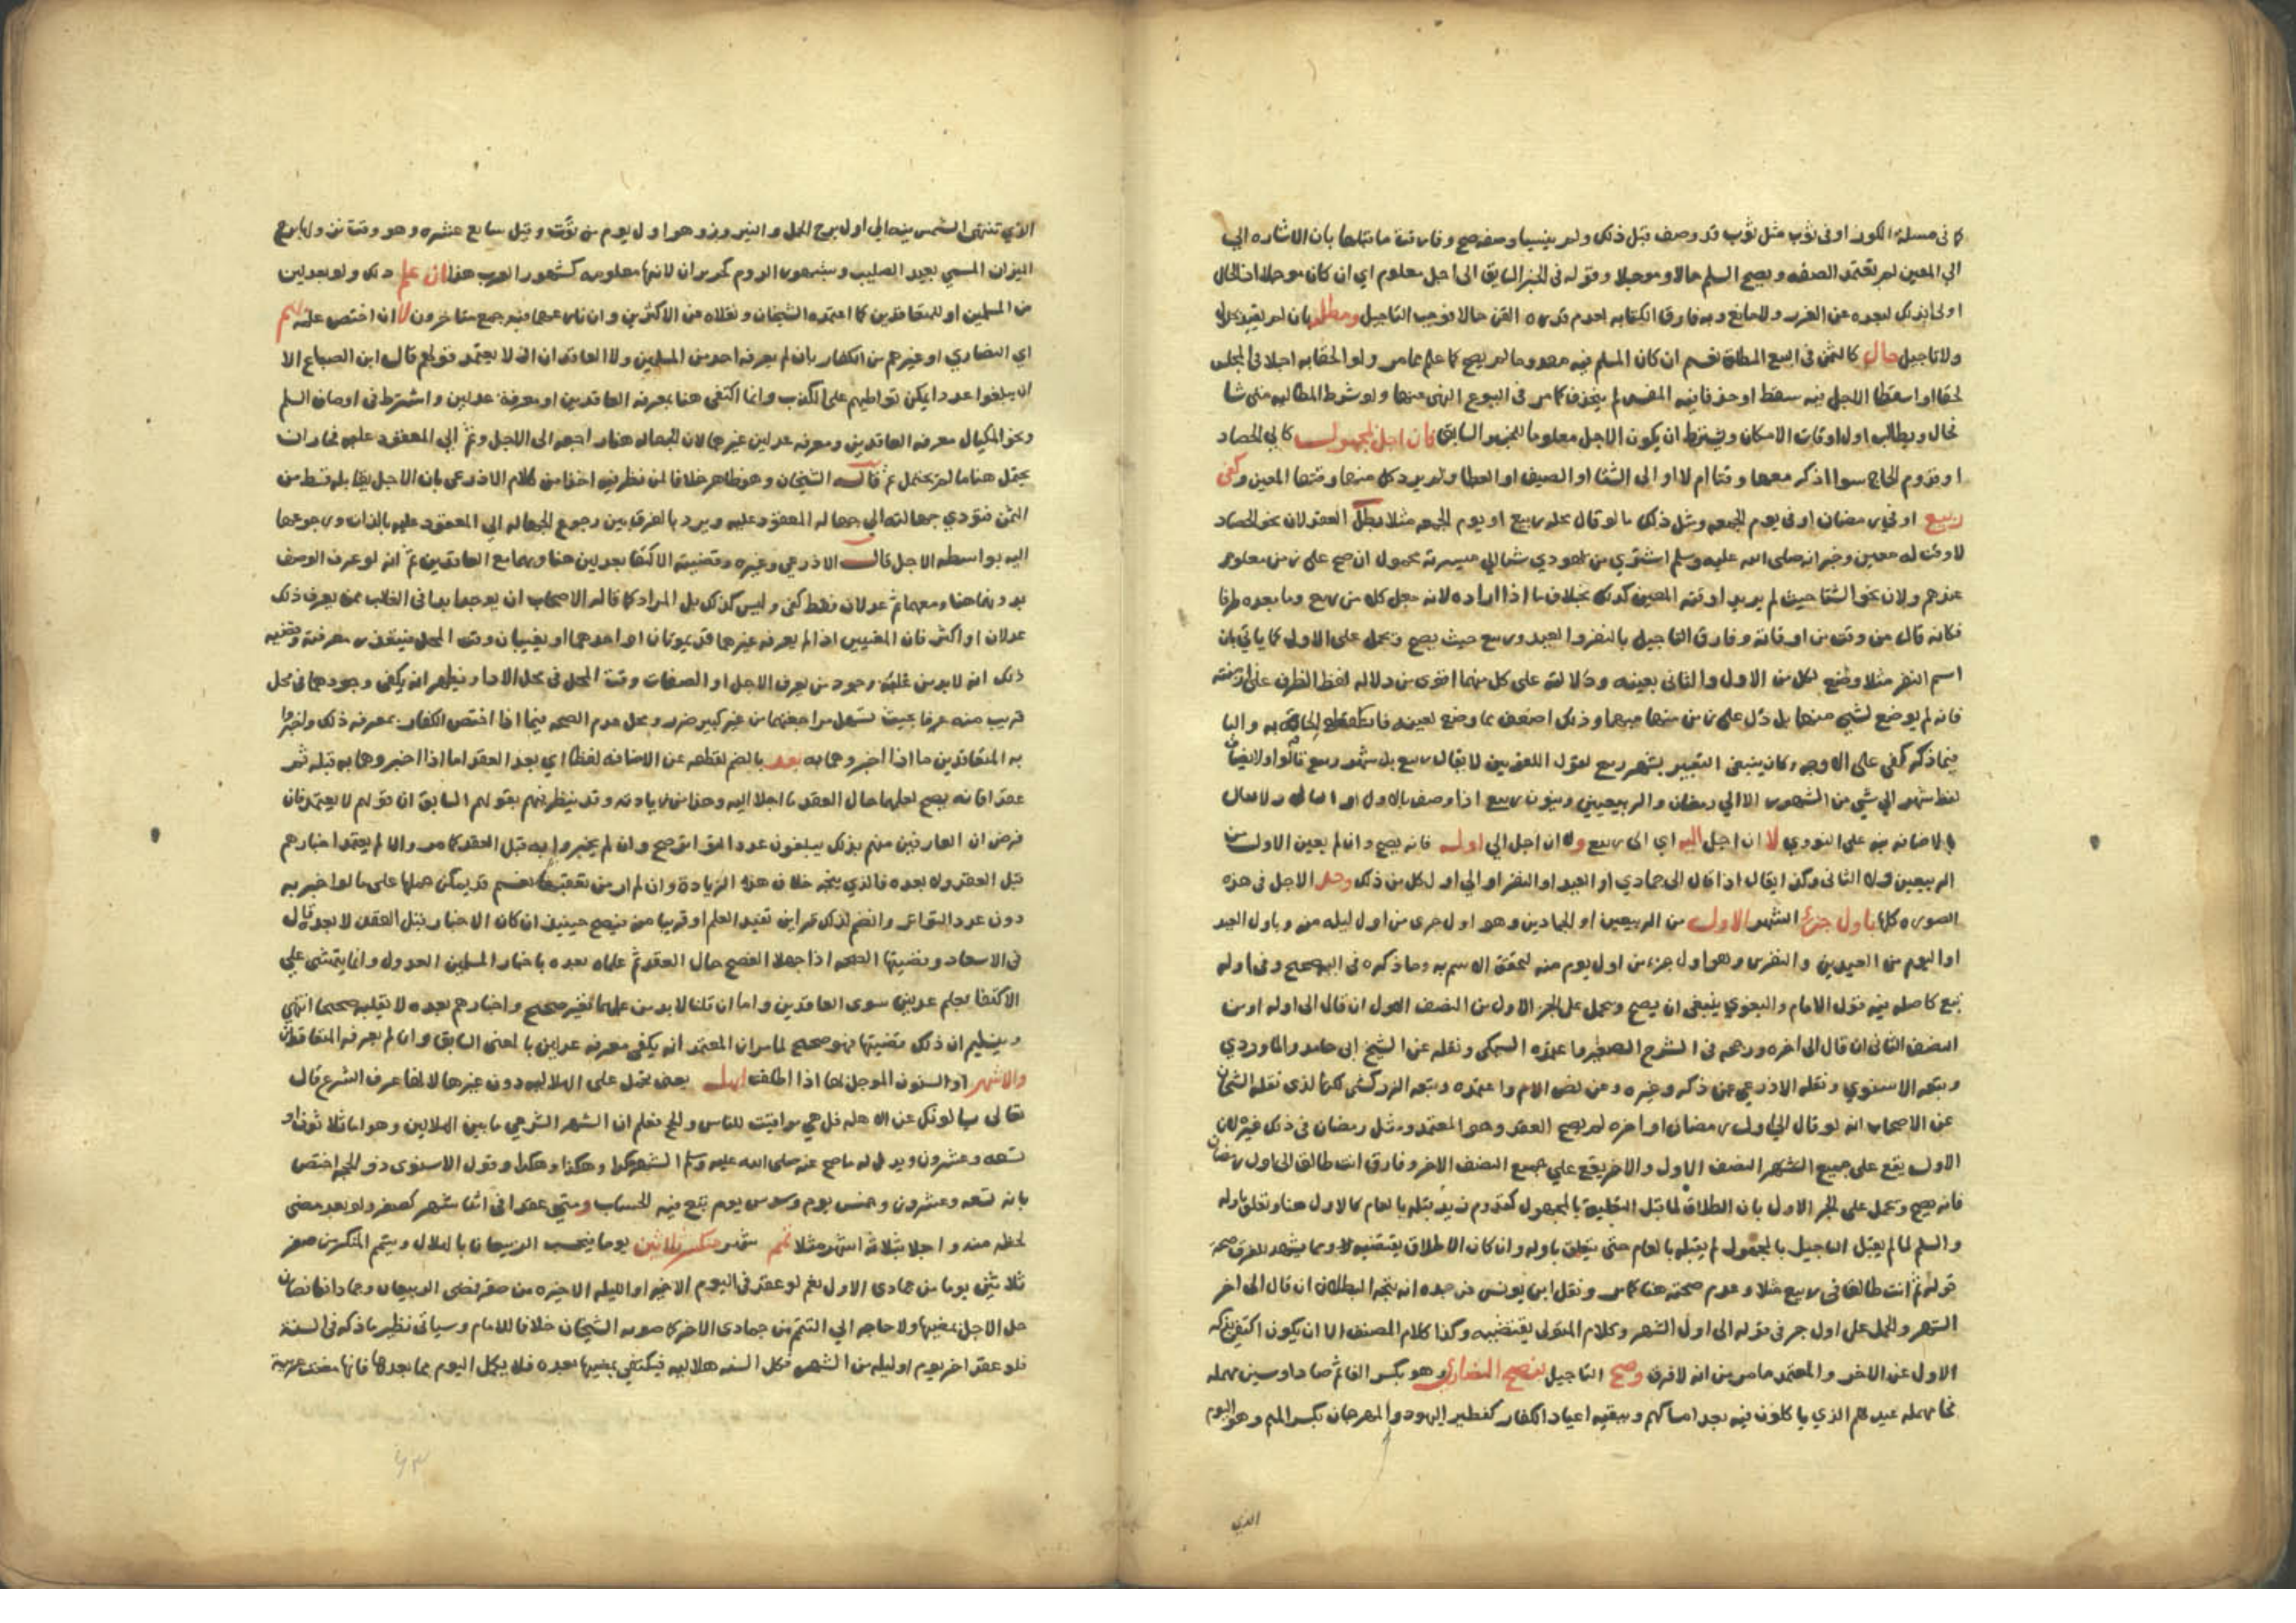 كما في مسلة الكوز او في ثوب مثل ثوب قد وصف قبل ذلك ولم ينسيا وصفه صح وفارقت ما قبلها بان الاشاره الي
الي المعين لم تعتمد الصفه ويصح السلم حالا وموجلا وقوله في الخبر السابق الى اجل معلوم اي ان كان موجلا اذ الحال
اولى بذلك لبعده عن الغرر ولا مانع وبه فارق الكتابه لعدم قدره القن حالا فوجب التاجيل ومطلقه بان لم يقيد بحلول
ولا تاجيل حال كالثمن في البيع المطلق نعم ان كان المسلم فيه معدوما لم يصح كما علم مما مر ولو الحقا به اجلا في المجلس
لحقا او اسقطا الاجل فيه سقط او حذفا فيه المفسد لم ينحذف كما مر في البيوع المنهي عنها ولو شرط المطالبه متى شا
فحال ويطالب اول اوقات الامكان ويشترط ان يكون الاجل معلوما للخبر السابق فان اجل لمجهول كالي الحصاد
او قدوم الحاج سوا اذكر معها وقتا ام لا او الى الشتا او الصيف او العطا ولم يرد كل منها وقتها المعين وكفى
ربيع او في رمضان او في يوم الجمعه ومثل ذلك ما لو قال محله ربيع او يوم الجمعه مثلا بطل العقد لان نحو الحصاد
لا وقت له معين وخبر انه صلى الله عليه وسلم اشترى من يهودي شيا الي ميسرته محمول ان صح على زمن معلوم
عندهم ولان نحو الشتا حيث لم يريدا وقته المعين كذلك بخلاف ما اذا اراده لانه جعل كل من ربيع وما بعده ظرفا
فكانه قال من وقت من اوقاته وفارق التاجيل بالنفر والعيد وربيع حيث يصح ويحمل على الاول كما ياتي بان
اسم النفر مثلا وضع لكل من الاول والثاني بعينه ودلالته على كل منهما اقوى من دلاله لفظ الظرف على ازمنته
فانه لم يوضع لشي منها بل دل على زمن منها مبهما وذلك اضعف مما وضع لعينه به والبا
فيما ذكر كفي على الاوجه وكان ينبغي التعبير بشهر ربيع لقول اللغويين لا يقال ربيع بل شهر ربيع قالوا ولا يضاف
لفظ شهر الي شي من الشهور الا الي رمضان والربيعين وينون ربيع اذا وصف بالاول او الثاني ولا يقال
بالاضافه نبه على النووي لا ان اجل اليه اي الى ربيع ولا ان اجل الي اوله فانه يصح وان لم يعين الاول من
الربيعين ولا الثاني وكذا يقال اذا قال الى جمادي او العيد او النفر او الي اول كل من ذلك وحل الاجل في هذه
الصوره كلها باول جزء الشهر الاول من الربيعين او الجمادين وهو اول جزء من اول ليله منه وباول العيد
او اليوم من العيدين والنفرين وهو اول جزء من اول يوم منه لتحقق الاسم به وما ذكره في اليه صحيح وفي اوله
تبع كاصله فيه قول الامام والبغوي ينبغي ان يصح ويحمل على الجزء الاول من النصف الاول ان قال الى اوله او من
النصف الثاني ان قال الى اخره ورجحه في الشرح الصغير واعتمده السبكي ونقله عن الشيخ ابي حامد والماوردي
وتبعه الاسنوي ونقله الاذرعي عمن ذكر وغيره وعن نص الام واعتمده وتبعه الزركشي لكن الذي نقله الشيخان
عن الاصحاب انه لو قال الي اول رمضان او اخره لم يصح العقد وهو المعتمد ومثل رمضان في ذلك غيره لان
الاول يقع على جميع الشهر النصف الاول والاخر يقع علي جميع النصف الاخر وفارق انت طالق الى اول رمضان
فانه يصح ويحمل على الجزء الاول بان الطلاق لما قبل التعليق بالمجهول كقدوم زيد قبله بالعام كالاول هنا وتعلق باوله
والسلم لما لم يقبل التاجيل بالمجهول لم يقبله بالعام حتى يتعلق باوله وان كان الاطلاق يقتضيه لا ومما يشهد للفرق صحه
قوله ثم انت طالق في ربيع مثلا وعدم صحته هنا كما مر ونقل ابن يونس عن جده انه يتجه البطلان ان قال الى اخر
الشهر والحمل على اول جزء في قوله الى اول الشهر وكلام المتولى يقتضيه وكذا كلام المصنف الا ان يكون اكتفى بذكر
الاول عن الاخر والمعتمد ما مر من انه لا فرق وصح التاجيل بفصح النصارى وهو بكسر الفا ثم صاد او سين مهمله
فحا مهمله عيد لهم الذي ياكلون فيه بعد امساكهم وببقيه اعياد الكفار كفطير اليهود والمهرجان بكسر الميم وهو اليوم
الذي
الذي تنتهي الشمس فيه الي اول برج الحمل والنيروز وهو اول يوم من توت وقيل سابع عشره وهو وقت نزولها برج
الميزان المسمي بعيد الصليب وبشهور الروم كحزيران لانها معلومه كشهور العرب هذا ان علم ذلك ولو بعدلين
من المسلمين او للمتعاقدين كما اعتمده الشيخان ونقلاه عن الاكثرين وان نازعهما فيه جمع متاخرون لا ان اختص علمه بهم
اي النصارى او غيرهم من الكفار بان لم يعرفه احد من المسلمين ولا العاقدان اذ لا يعتمد قولهم قال ابن الصباغ الا
ان يبلغوا عددا يمكن تواطيهم على الكذب وانما اكتفى هنا بمعرفه العاقدين او معرفة عدلين واشترط في اوصاف السلم
ونحو المكيال معرفه العاقدين ومعرفه عدلين غيرهما لان الجهاله هنا راجعه الى الاجل وثم الي المعقود عليه فجاز ان
يحتمل هنا ما لم يحتمل ثم قاله الشيخان وهو ظاهر خلافا لمن نظر فيه اخذا من كلام الاذرعي بان الاجل يقابله قسط من
الثمن فتودي جهالته الي جهاله المعقود عليه ويرد بالفرق بين رجوع الجهاله الي المعقود عليه بالذات ورجوعها
اليه بواسطه الاجل قال الاذرعي وغيره وقضيته الاكتفا بعدلين هنا ومعهما مع العاقدين ثم انه لو عرف الوصف
بدونهما هنا ومعهما ثم عدلان فقط كفى وليس كذلك بل المراد كما قاله الاصحاب ان يوجدا ابدا في الغالب ممن يعرف ذلك
عدلان او اكثر فان المعينين اذا لم يعرفه غيرهما قد يموتان او احدهما او يغيبان وقت المحل فيتعذر معرفته وقضيه
ذلك انه لا بد من غلبة وجود من يعرف الاجل او الصفات وقت المحل في محل الادا ويظهر انه يكفي وجودهما في محل
قريب منه عرفا بحيث تسهل مراجعتهما من غير كبير ضرر ومحل عدم الصحه فيما اذا اختص الكفار بمعرفه ذلك واخبروا
به المتعاقدين ما اذا اخبروهما به بعد بالضم لقطعه عن الاضافه لفظا اي بعد العقد اما اذا اخبروهما به قبله ثم
عقدا فانه يصح لعلمهما حال العقد ما اجلا اليه وهذا من زيادته وقد ينظر فيهم بقولهم السابق ان قولهم لا يعتمد فان
فرض ان العارفين منهم بذلك يبلغون عدد التواتر صح وان لم يخبروا به قبل العقد كما مر والا لم يعتمد اخبارهم
قبل العقد ولا بعده فالذي يتجه خلاف هذه الزيادة وان لم ار من تعقبها نعم قد يمكن حملها على ما لو اخبر به
دون عدد التواتر وانضم لذلك قراين تفيد العلم او قريبا منه فيصح حينيذ ان كان الاخبار قبل العقد لا بعد قال
في الاسعاد وقضيتها الصحه اذا جهلا الفصح حال العقد ثم علماه بعده باخبار المسلمين العدول وانما يتمشى علي
الاكتفا بعلم عدلين سوى العاقدين واما ان قلنا لا بد من علمهما فغير صحيح واخبارهم بعده لا يقلبه صحيحا انتهى
وينظر ان ذلك قضيتها فهو صحيح لما مر ان المعتمد انه يكفى معرفه عدلين بالمعنى السابق وان لم يعرفه المتعاقدان
والاشهر او السنون الموجل بها اذا اطلقت اهله يعنى تحمل على الهلاليه دون غيرها لانها عرف الشرع قال
تعالى يسالونك عن الاهله قل هي مواقيت للناس والحج فعلم ان الشهر الشرعي ما بين الهلالين وهو اما ثلاثون او
تسعه وعشرون ويدل له ما صح عنه صلى الله عليه وسلم الشهر هكذا وهكذا وهكذا وقول الاسنوى ذو الحجه اختص
بانه تسعه وعشرون وخمس يوم وسدس يوم تبع فيه الحساب ومتى عقدا في اثنا شهر كصفر ولو بعد مضى
لحظه منه واجلا بثلاثة اشهر مثلا تمم شهر منكسر ثلاثين يوما فيحسب الربيعان بالهلال ويتمم المنكسر من صفر
ثلاثين يوما من جمادى الاول نعم لو عقد في اليوم الاخير او الليله الاخيره من صفر فمضى الربيعان وجمادى ناقصان
حل الاجل بمضيها ولا حاجه الي التتميم من جمادى الاخر كما صوبه الشيخان خلافا للامام وسياتى نظير ما ذكر في السنة
فلو عقد اخر يوم او ليله من الشهر فكل السنه هلاليه فيكتفي بمضيها بعده فلا يكمل اليوم مما بعدها فانها مضت عربية